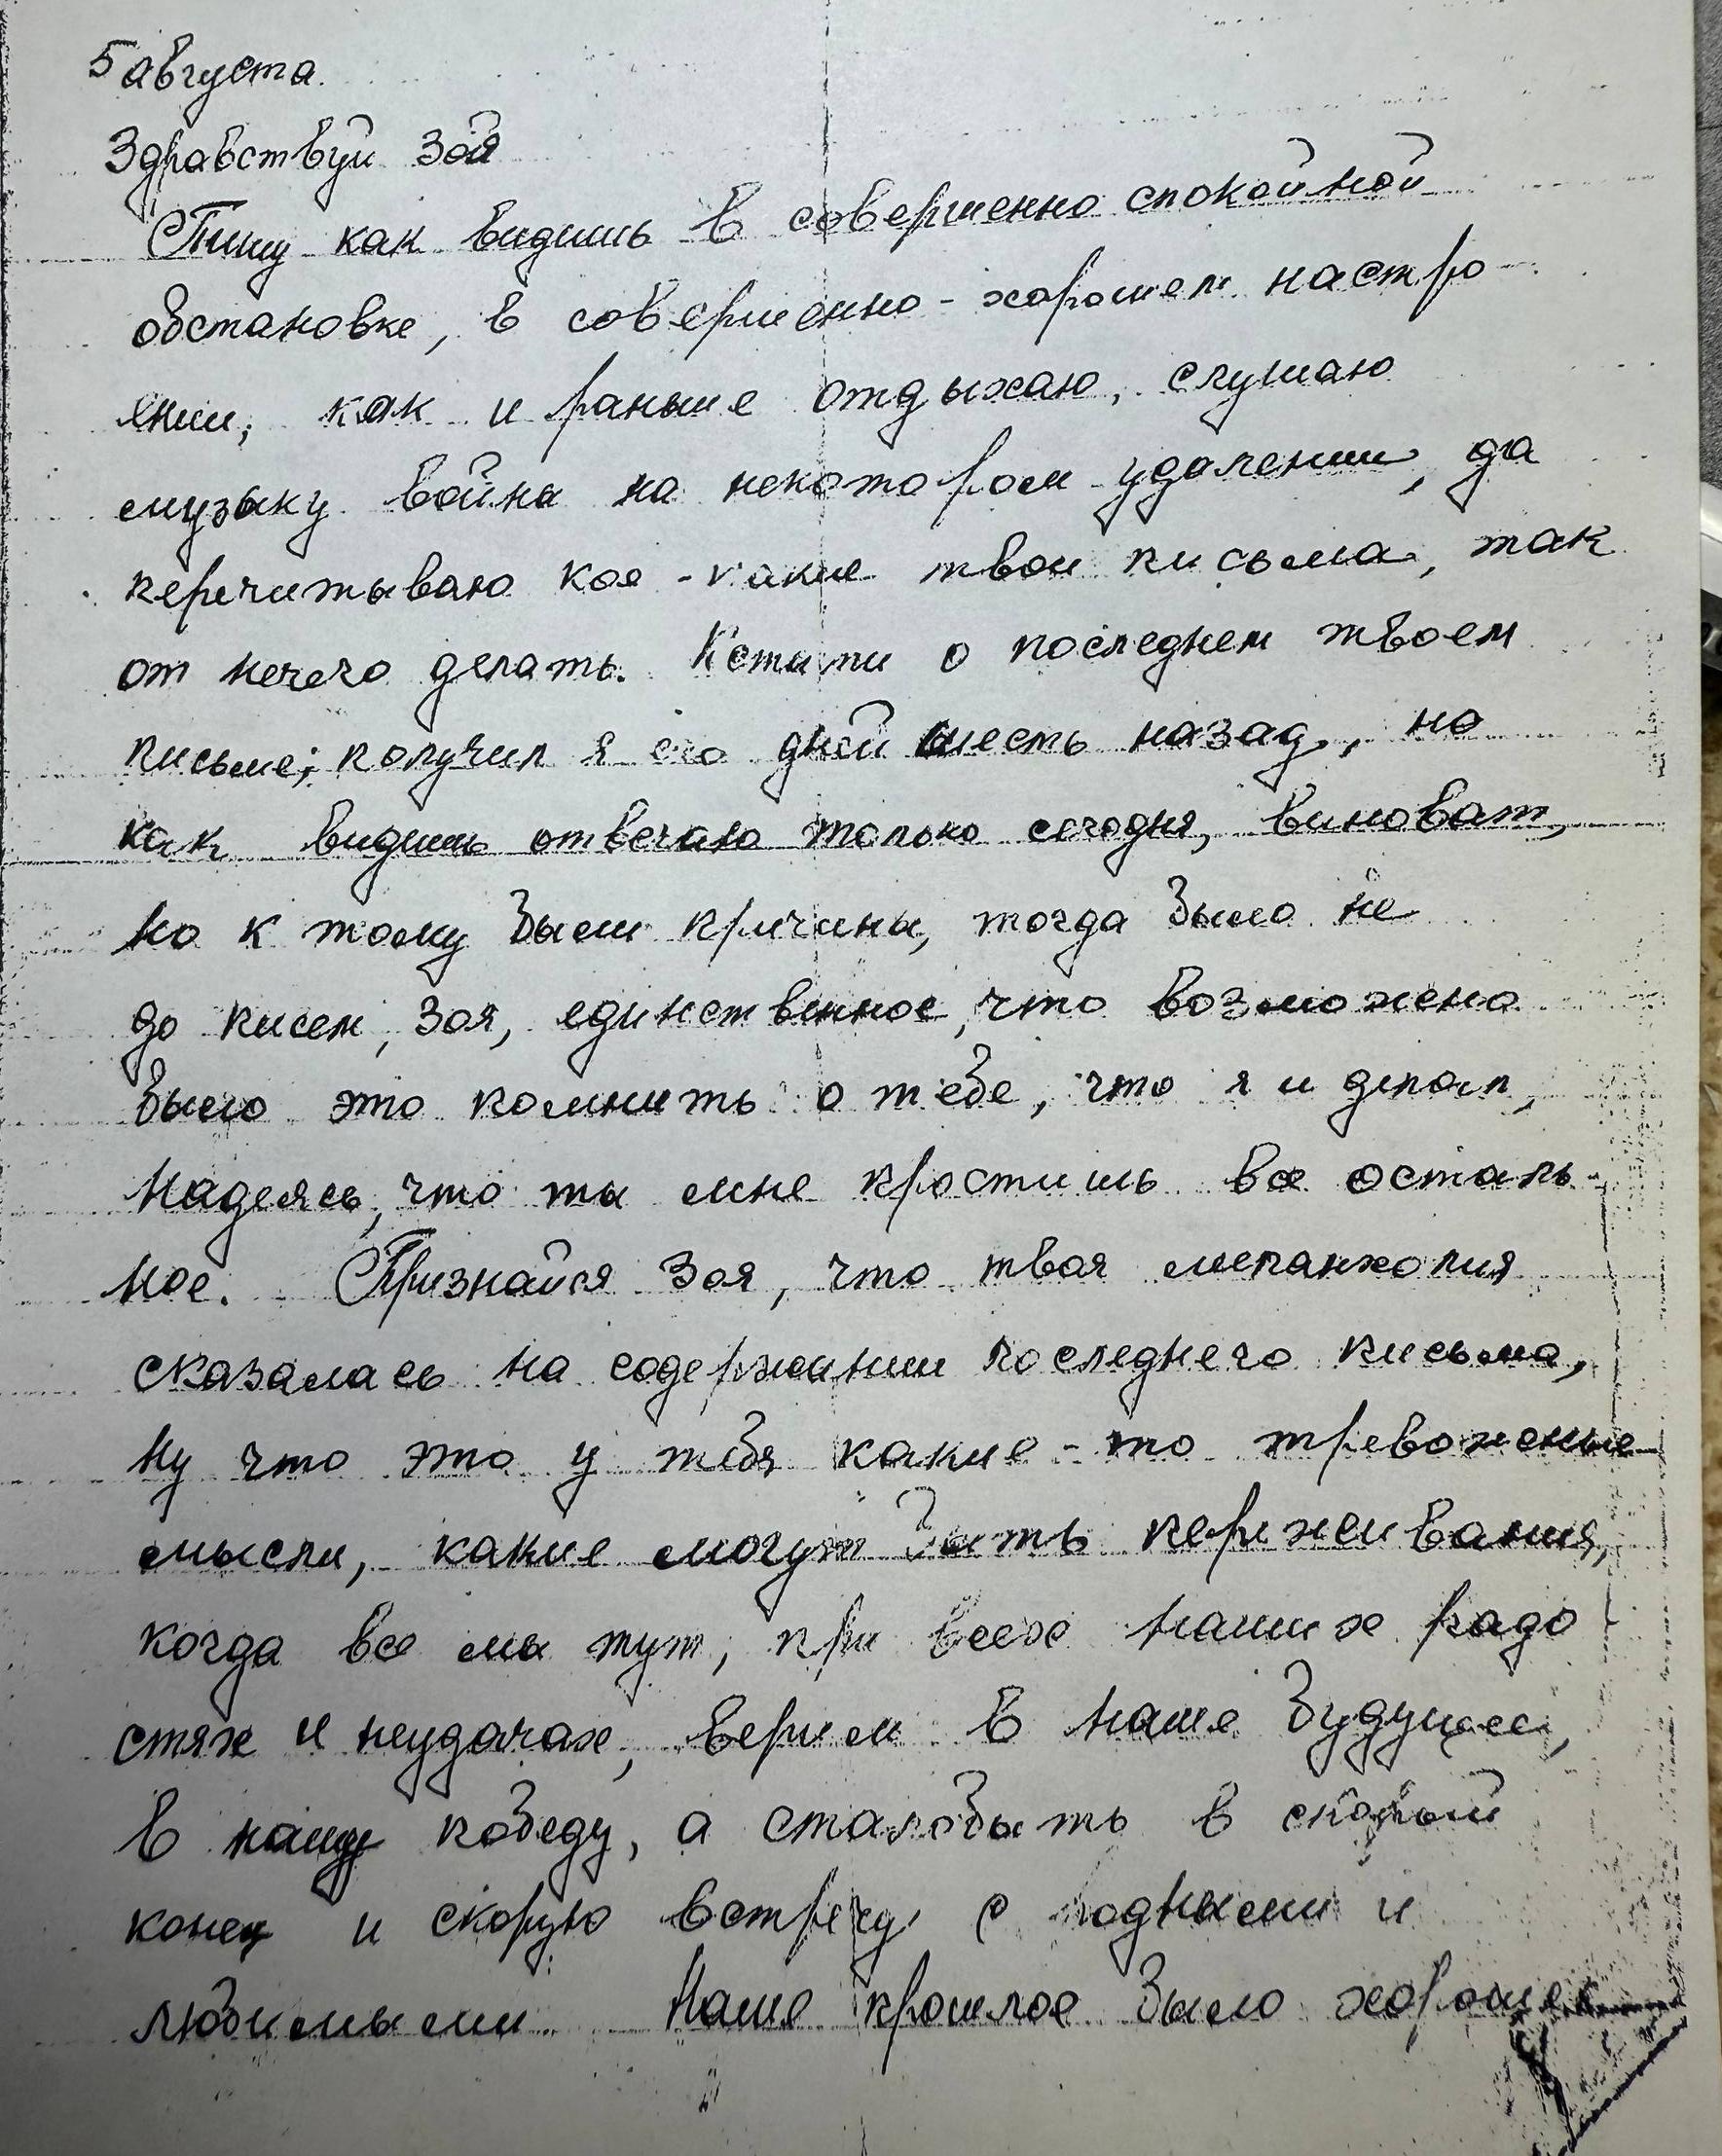 5 августа.
Здравствуй Зоя
Пишу как видишь в совершенно спокойной
обстановке, в совершенно-хорошем настро-
ении, как и раньше отдыхаю, слушаю
музыку война на некотором удалении, да
перечитываю кое-какие твои письма, так
от нечего делать. Кстати о последнем твоем
письме; получил я его дней шесть назад, но
как видишь отвечаю только сегодня, виноват,
но к тому были причины, тогда было не
до писем, Зоя, единственное, что возможно
было это помнить о тебе, что я и делал,
надеясь, что ты мне простишь все осталь-
ное. Признайся Зоя, что твоя меланхолия
сказалась на содержании последнего письма,
ну что это у тебя какие-то тревожные
мысли, какие могут быть переживания,
когда все мы тут, при всех наших радо
стях и неудачах, верим в наше будущее,
в нашу победу, а сталобыть в скорый
конец и скорую встречу с родными и
любимыми. Наше прошлое было хорошее